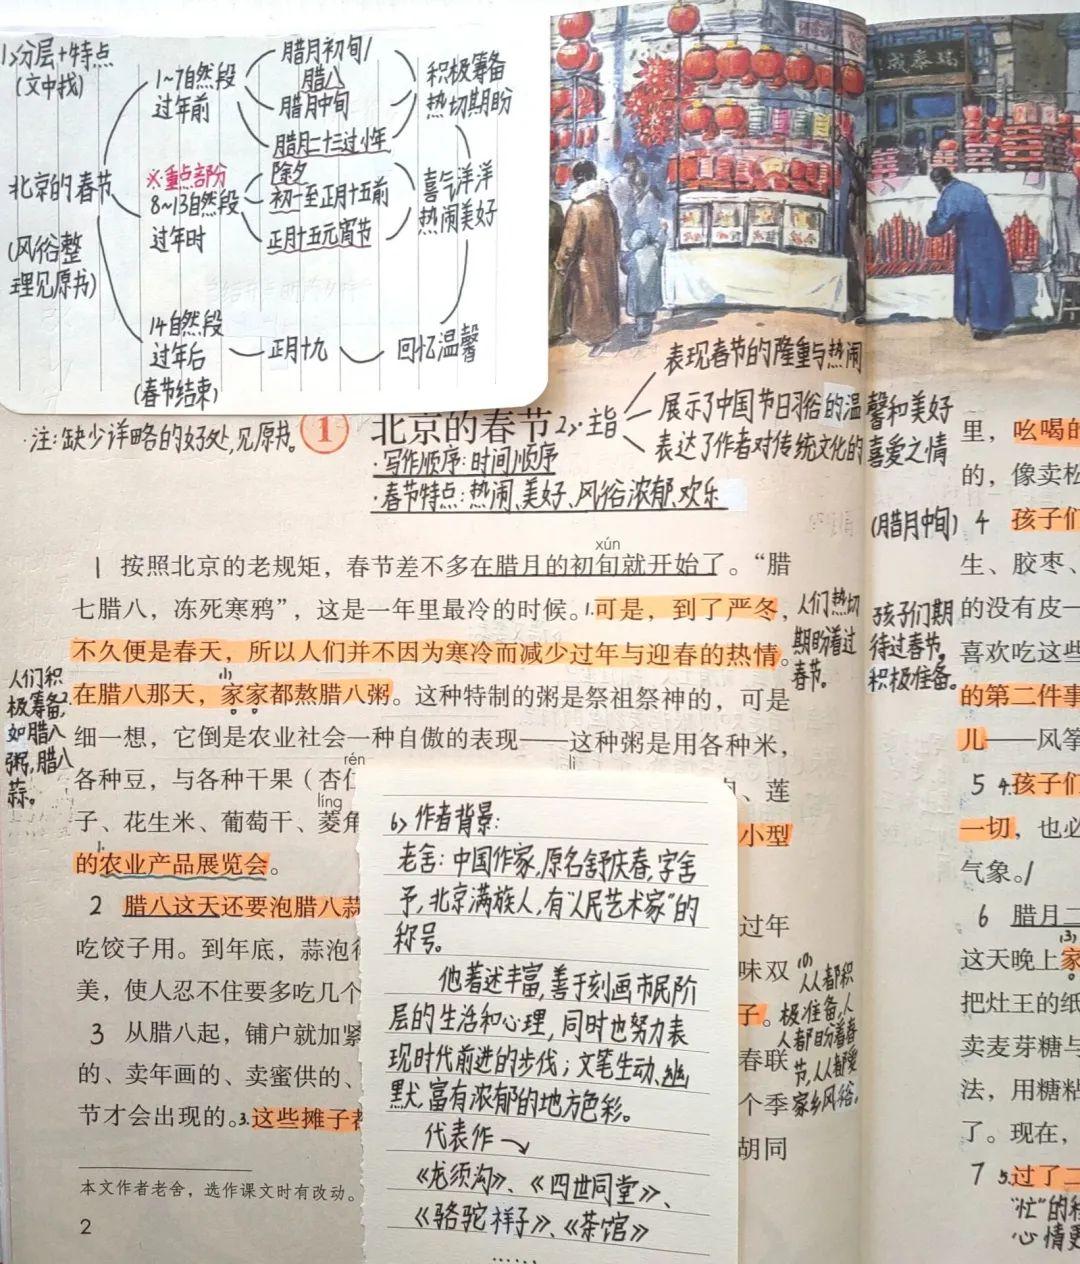 1>分层+特点
(文中找)
北京的春节
(风俗整
理见原书)
1~7自然段
过年前
腊月初旬/
腊八
腊月中旬
腊月二十三过小年
积极筹备
热切期盼
※重点部份
8~13自然段
过年时
除夕
初一至正月十五前
正月十五元宵节
喜气洋洋
热闹美好
14自然段
过年后
(春节结束)
正月十九
回忆温馨
·注:缺少详略的好处,见原书。
瑞泰成
1 北京的春节
2>·主旨
表现春节的隆重与热闹
展示了中国节日习俗的温馨和美好
表达了作者对传统文化的喜爱之情
·写作顺序:时间顺序
·春节特点:热闹、美好、风俗浓郁、欢乐
xún
1 按照北京的老规矩，春节差不多在腊月的初旬就开始了。“腊
七腊八，冻死寒鸦”，这是一年里最冷的时候。1.可是，到了严冬，
不久便是春天，所以人们并不因为寒冷而减少过年与迎春的热情。
2.在腊八那天，家家都熬腊八粥。这种特制的粥是祭祖祭神的，可是
细一想，它倒是农业社会一种自傲的表现——这种粥是用各种米，
rén
各种豆，与各种干果（杏仁
、莲
líng
子、花生米、葡萄干、菱角
小型
的农业产品展览会。
2 腊八这天还要泡腊八蒜
过年
吃饺子用。到年底，蒜泡得
味双
美，使人忍不住要多吃几个
子。
3 从腊八起，铺户就加紧
春联
的、卖年画的、卖蜜供的、
个季
节才会出现的。3.这些摊子都
胡同
人们热切
期盼着过
春节。
人们积
极筹备,
如腊八
粥,腊八
蒜。
(1)人人都积
极准备,人
人都盼着春
节,人人都爱
家乡风俗。
6>作者背景:
老舍:中国作家,原名舒庆春,字舍
予,北京满族人,有“人民艺术家”的
称号。
他著述丰富,善于刻画市民阶
层的生活和心理,同时也努力表
现时代前进的步伐;文笔生动、幽
默,富有浓郁的地方色彩。
代表作
《龙须沟》、《四世同堂》、
《骆驼祥子》、《茶馆》
……
本文作者老舍，选作课文时有改动。
2
里，吆喝的
的，像卖松
(腊月中旬)
4 孩子们
生、胶枣、
的没有皮一
喜欢吃这些
的第二件事
儿——风筝
孩子们期
待过春节,
积极准备。
5 4.孩子们
一切，也必
气象。
6 腊月二
(3)
这天晚上家
把灶王的纸
卖麦芽糖与
法，用糖粘
了。现在，
7 5.过了二
“忙”的
心情更